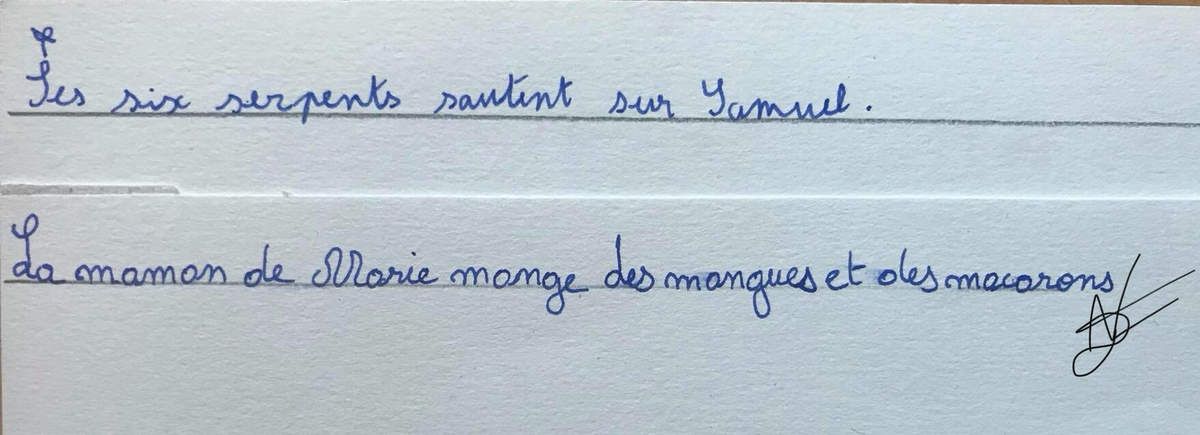 Les six serpents sautent sur Samuel.
La maman de Marie mange des mangues et des macarons